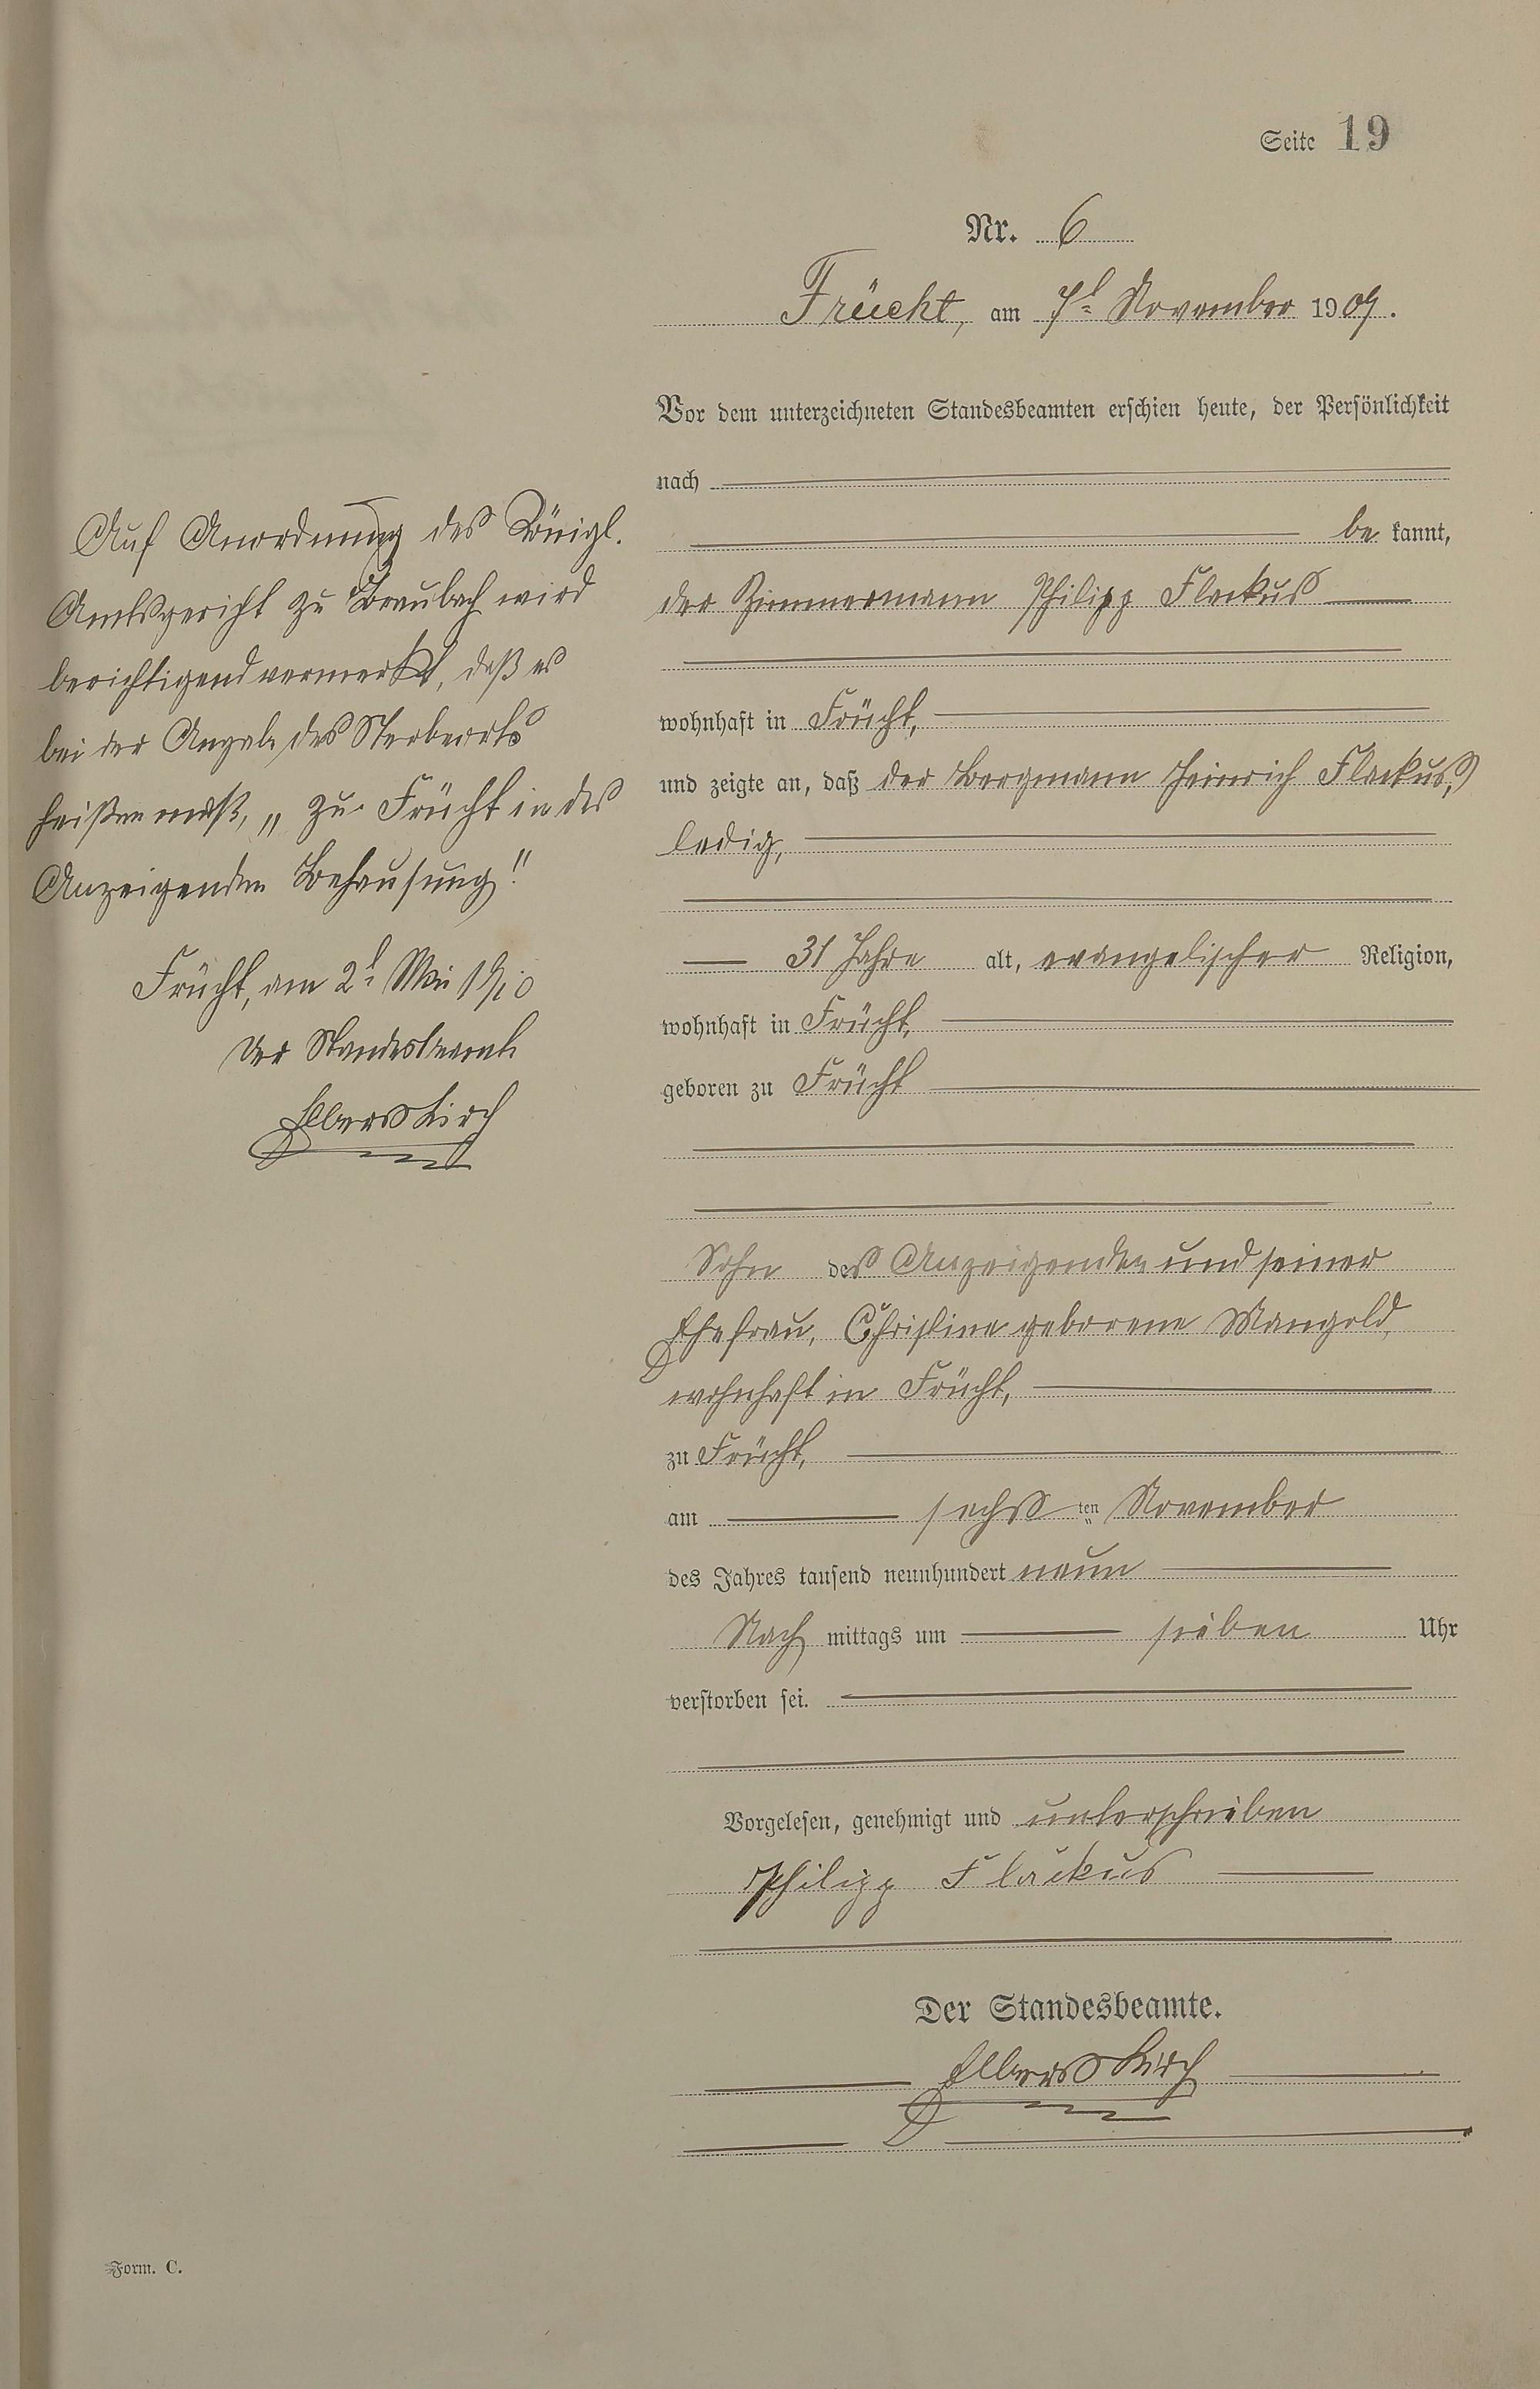 Seite 19
Nr. 6
Frücht, am 7t November 1909.
Vor dem unterzeichneten Standesbeamten erschien heute, der Persönlichkeit
nach
be kannt,
der Zimmermann Philipp Flackus
wohnhaft in Frücht,
und zeigte an, daß der Bergmann Heinrich Flackus,
ledig,
31 Jahre alt, evangelischer Religion,
wohnhaft in Frücht,
geboren zu Frücht
Sohn des Anzeigenden und seiner
Ehefrau, Christine geborene Mangold,
wohnhaft in Frücht,
zu Frücht,
am sechs ten November
des Jahres tausend neunhundert neun
Nach mittags um sieben Uhr
verstorben sei.
Vorgelesen, genehmigt und unterschrieben
Philipp Flackus
Der Standesbeamte.
Elberskirch
Auf Anordnung des Königl.
Amtsgericht zu Braubach wird
berichtigend vermerkt, daß es
bei der Angabe des Sterbeorts
heißen muß, „zu Frücht in des
Anzeigenden Behausung".
Frücht, am 2t Mai 1910
Der Standesbeamte
Elberskirch
Form. C.